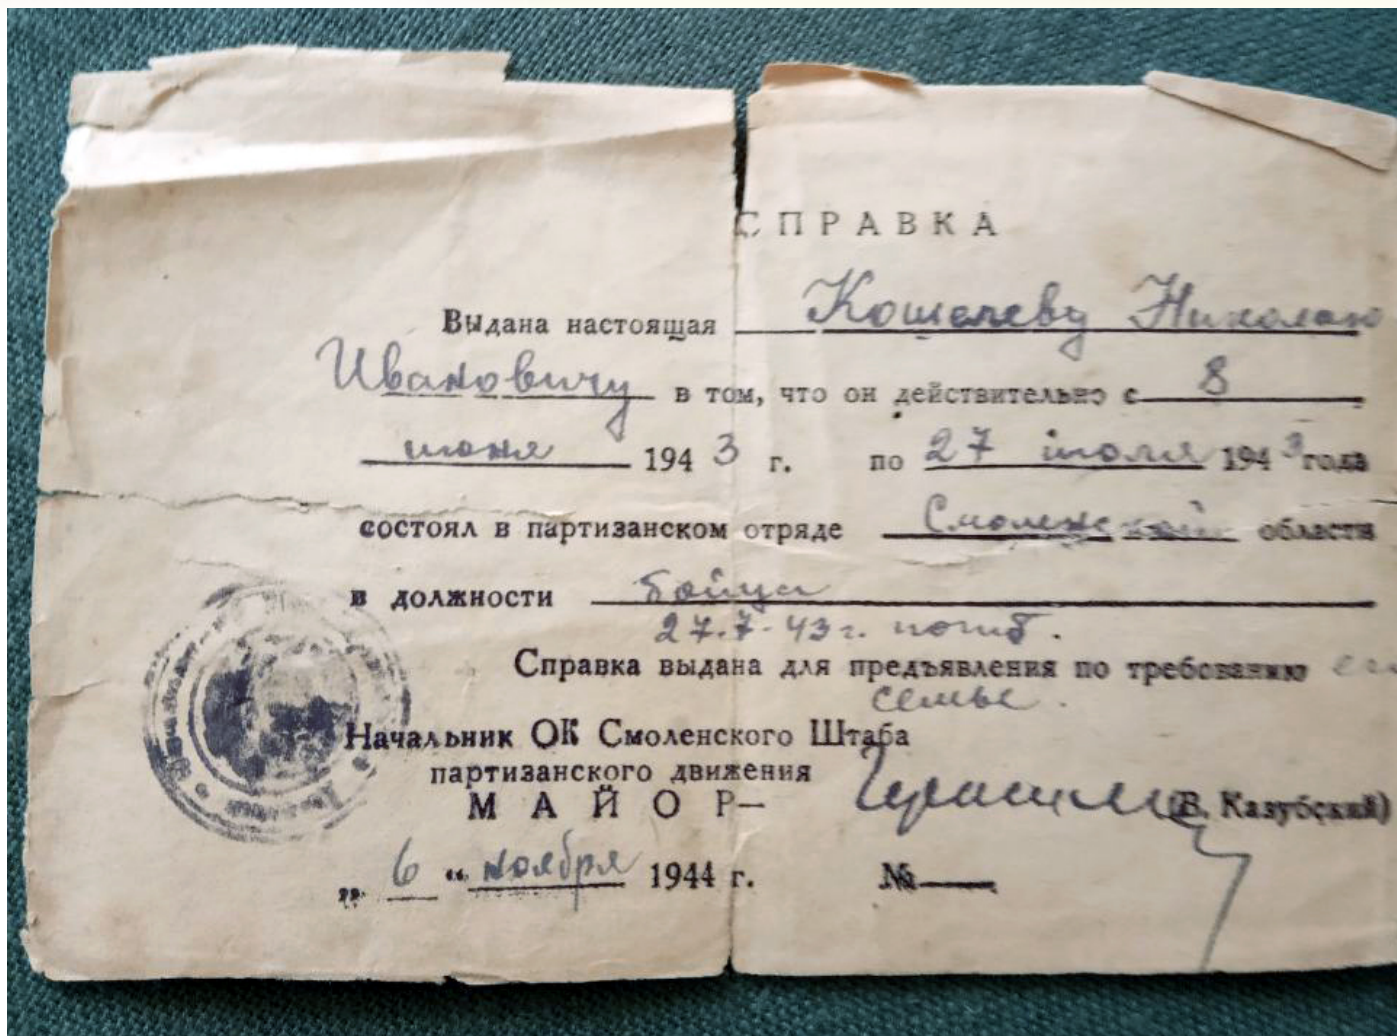 СПРАВКА
Выдана настоящая Кошелеву Николаю
Ивановичу в том, что он действительно с 8
июня 1943 г. по 27 июля 1943 года
состоял в партизанском отряде Смоленской области
в должности бойца
27.7.43 г. погиб.
Справка выдана для предъявления по требованию его
семье.
Начальник ОК Смоленского Штаба
партизанского движения
МАЙОР— (В. Казубский)
„ 6 “ ноября 1944 г. №—